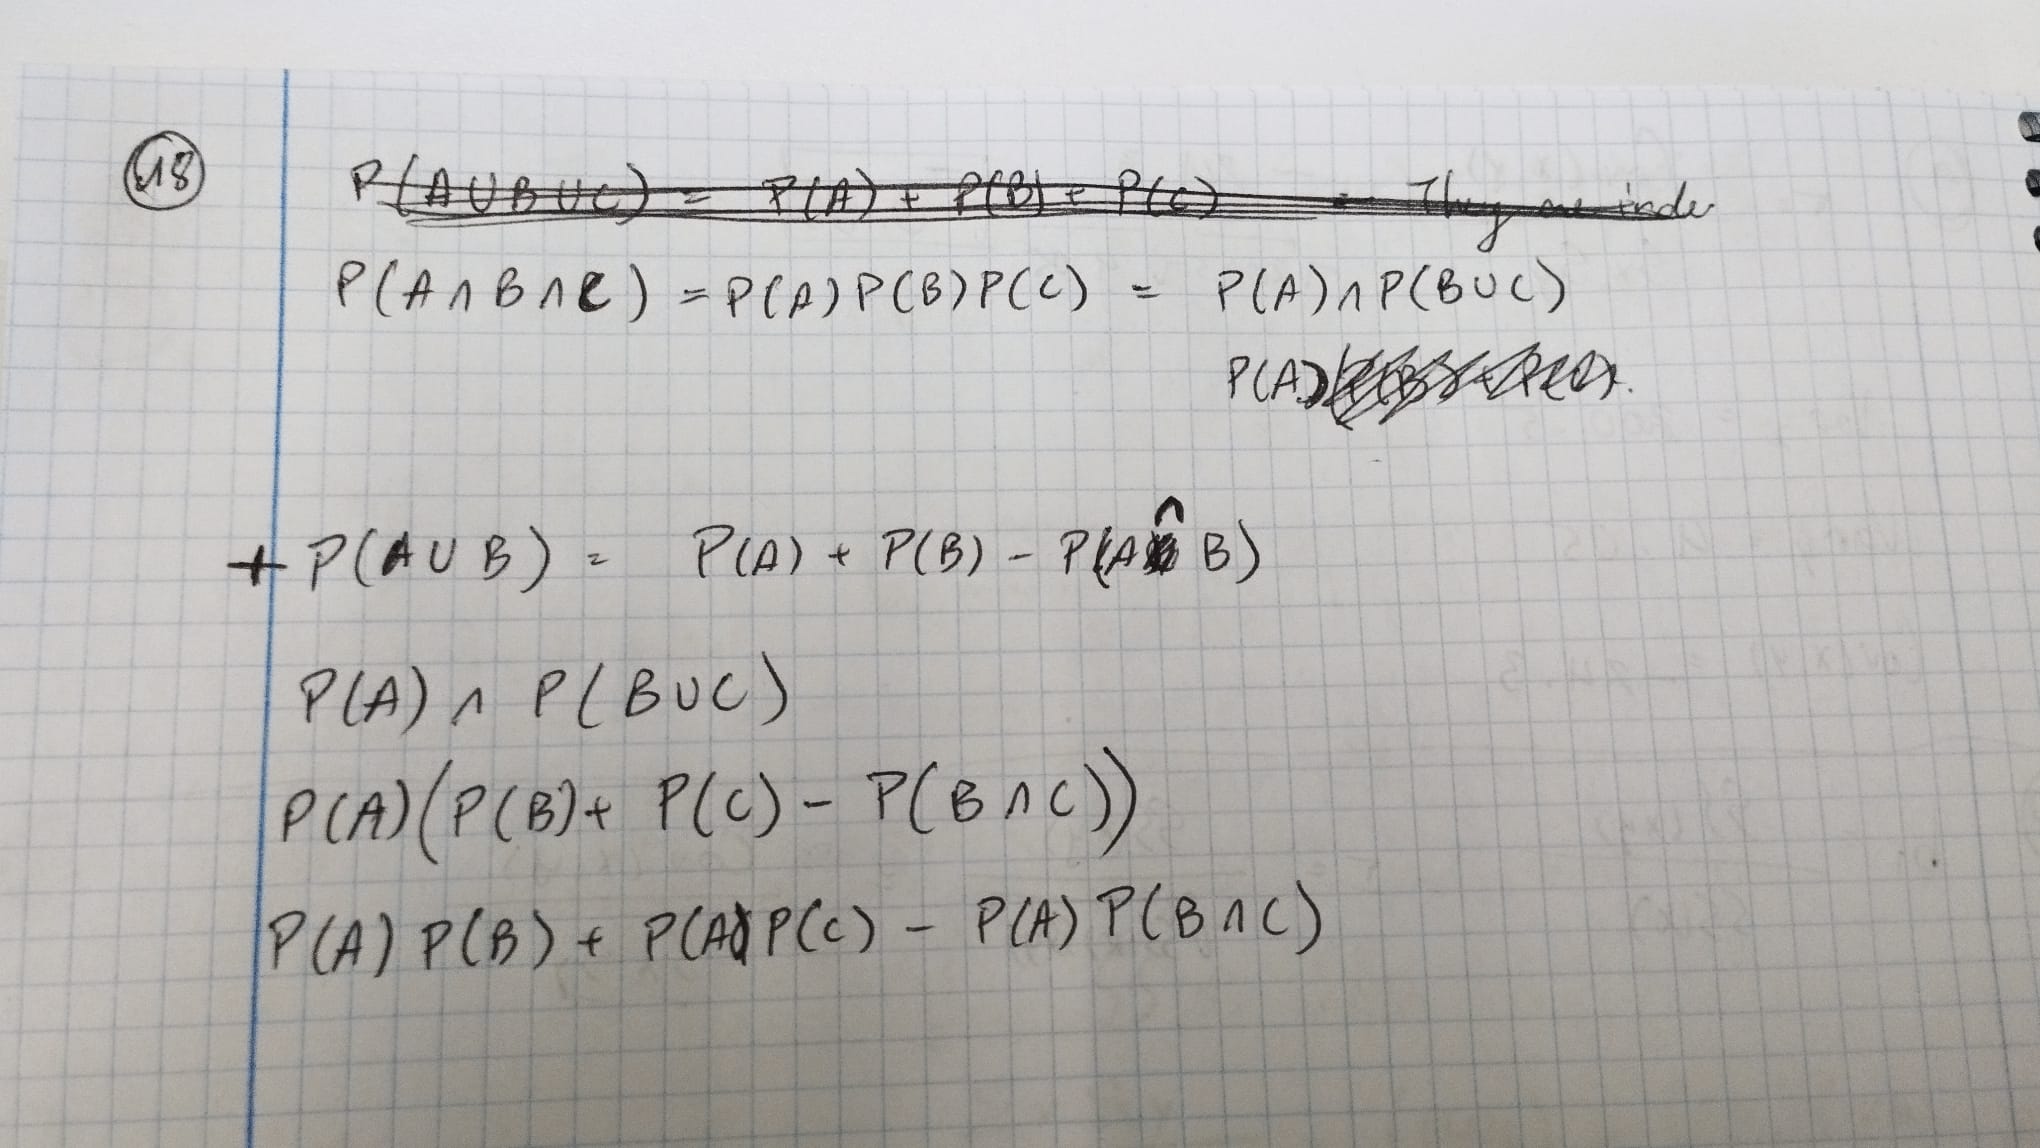 18
P(A∪B∪C) = P(A) + P(B) + P(C) = They are inde
P(A∩B∩C) = P(A)P(B)P(C) = P(A)∩P(B∪C)
P(A)
+ P(A∪B) = P(A) + P(B) - P(A∩B)
P(A)∩P(B∪C)
P(A)(P(B)+P(C)-P(B∩C))
P(A)P(B)+P(A)P(C)-P(A)P(B∩C)